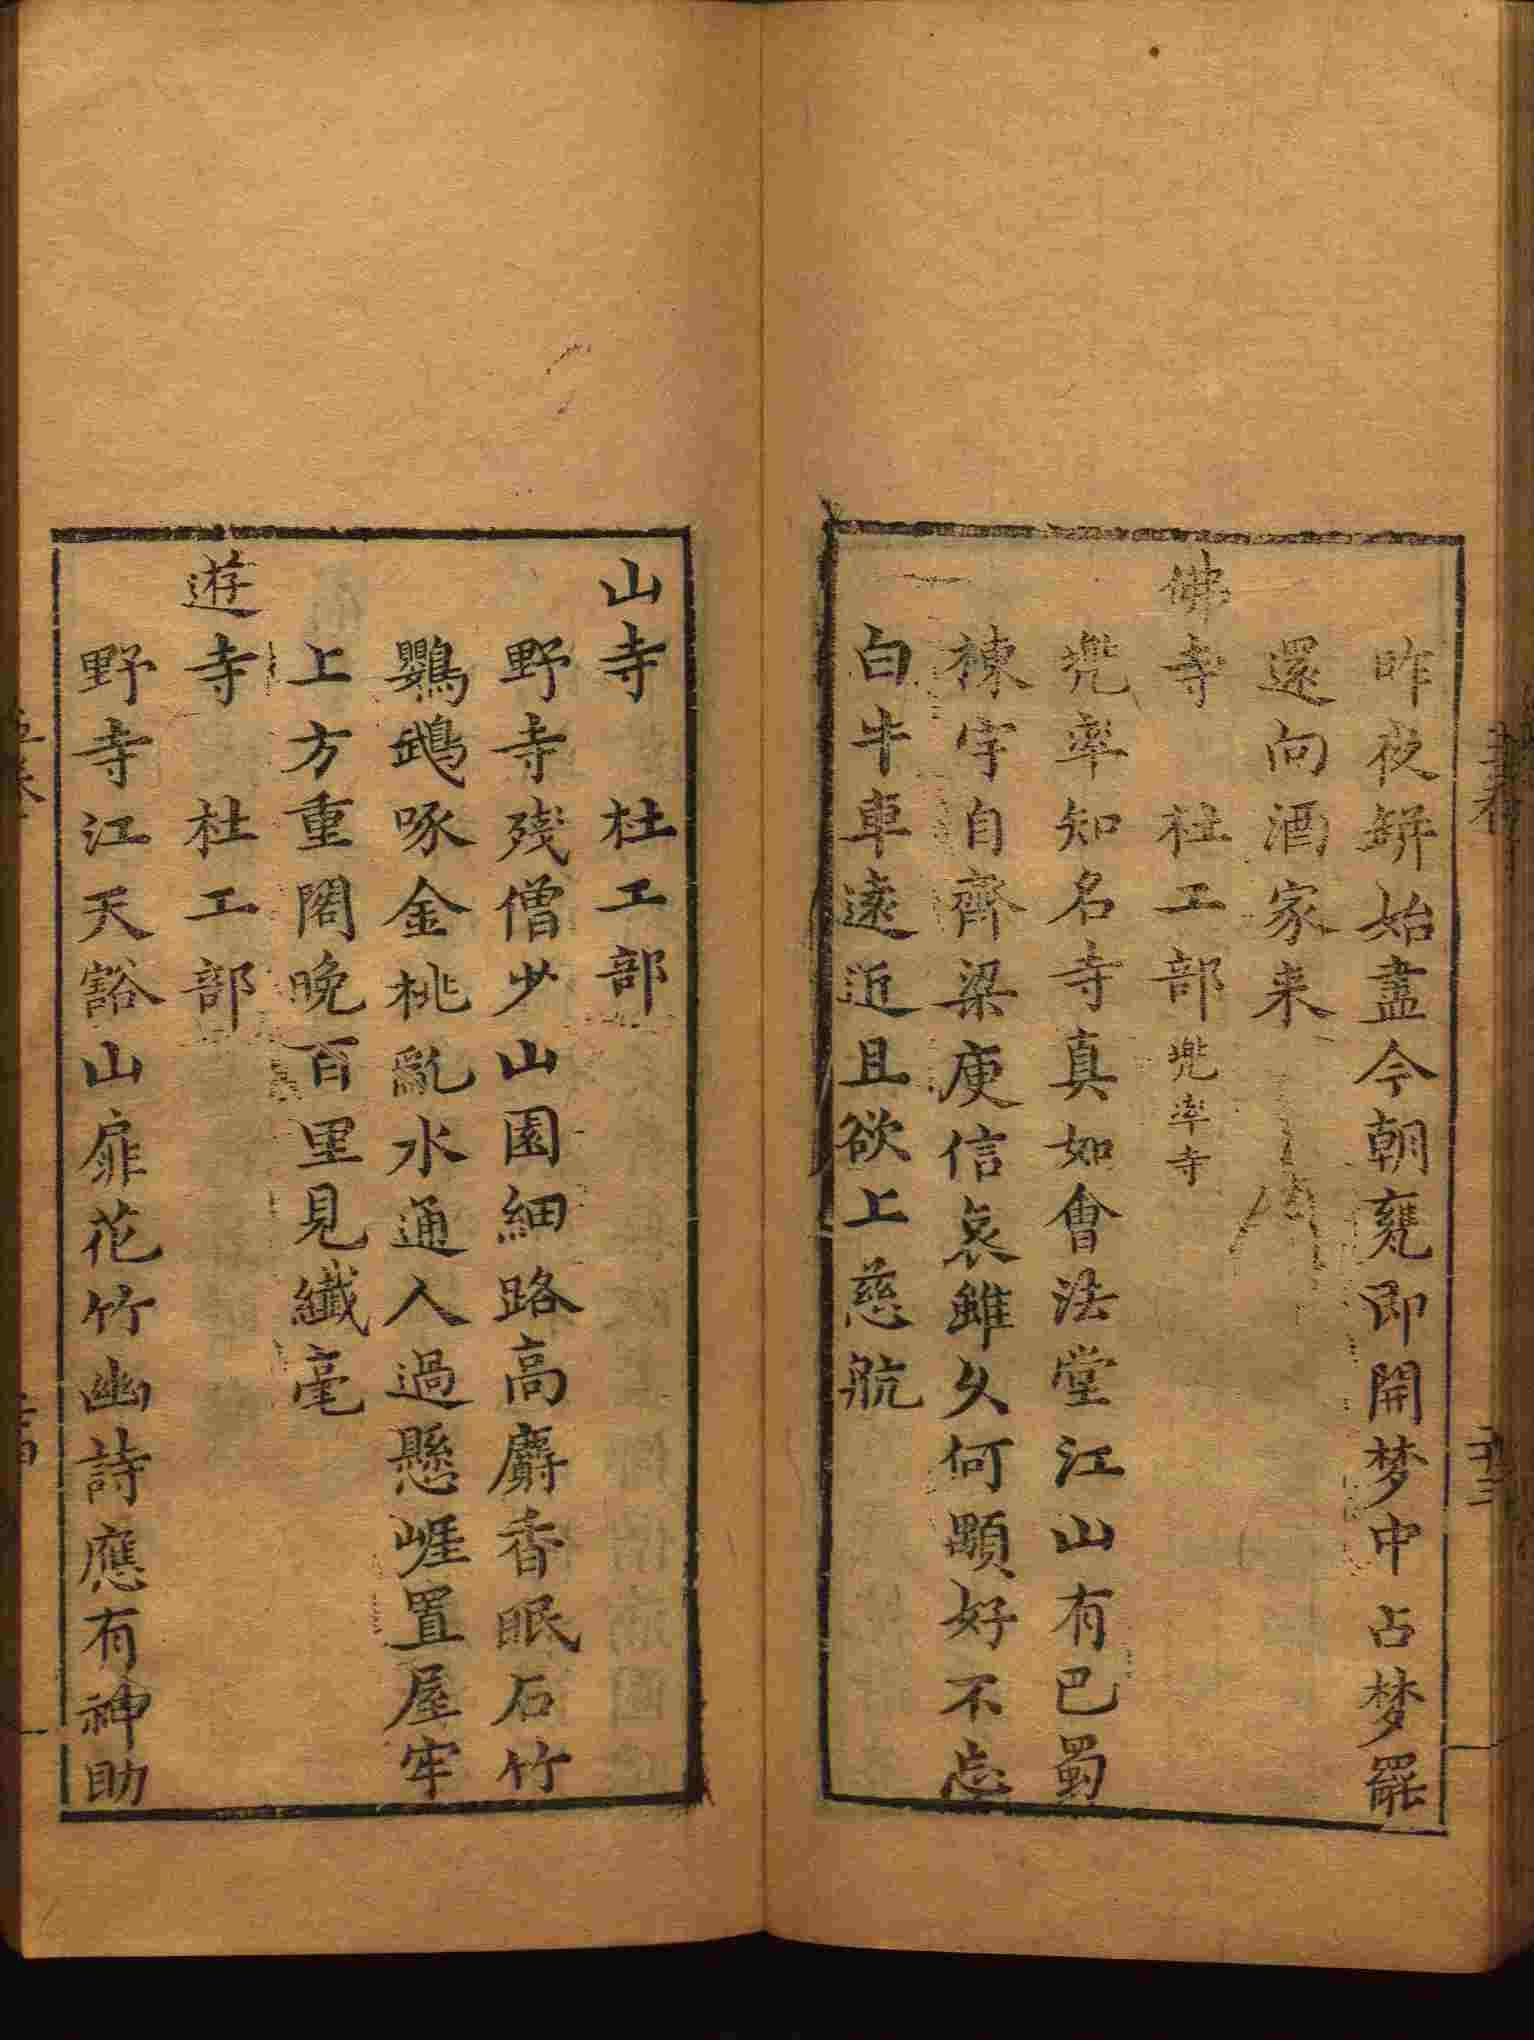 昨夜缾始盡今朝甕即開梦中占梦罷
還向酒家来
佛寺 杜工部 兠率寺
兠率知名寺真如會法堂江山有巴蜀
棟宇自齊梁庾信哀雖久何顒好不忘
白牛車遠近且欲上慈航
山寺 杜工部
野寺殘僧少山園細路高麝香眠石竹
鸚鵡啄金桃亂水通人過懸崖置屋牢
上方重閣晚百里見纖毫
遊寺 杜工部
野寺江天豁山扉花竹幽詩應有神助